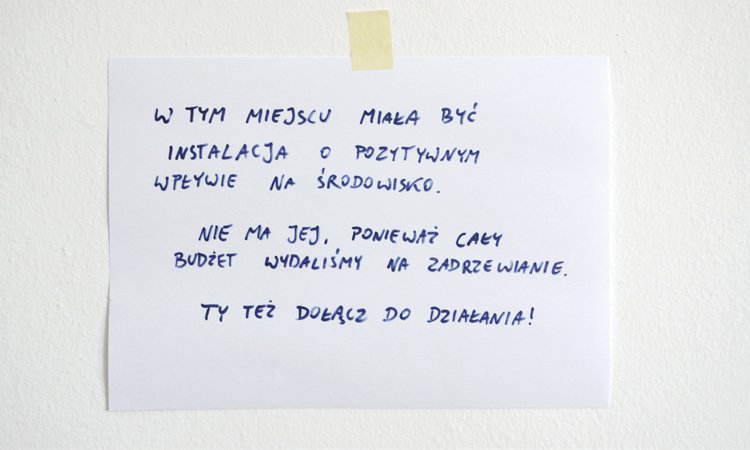 W TYM MIEJSCU MIAŁA BYĆ
INSTALACJA O POZYTYWNYM
WPŁYWIE NA ŚRODOWISKO.
NIE MA JEJ, PONIEWAŻ CAŁY
BUDŻET WYDALIŚMY NA ZADRZEWIANIE.
TY TEŻ DOŁĄCZ DO DZIAŁANIA!